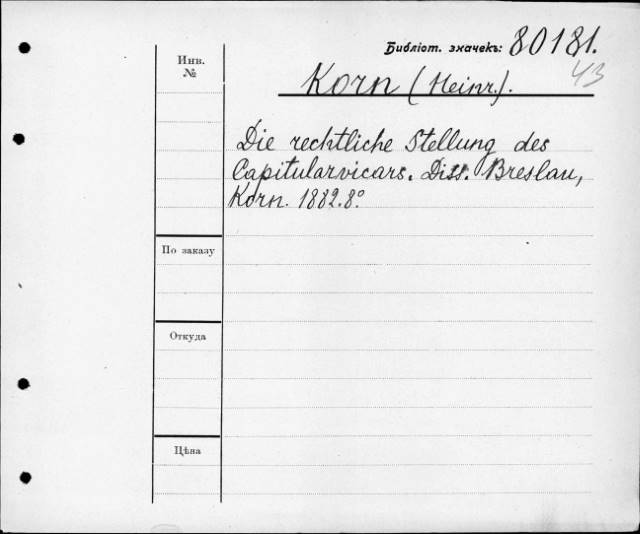 Библіот. значекъ: 80181.
43
Инв.
№
Korn (Heinr.).
Die rechtliche Stellung des
Capitularvicars. Diss. Breslau,
Korn. 1882. 8º
По заказу
Откуда
Цѣна